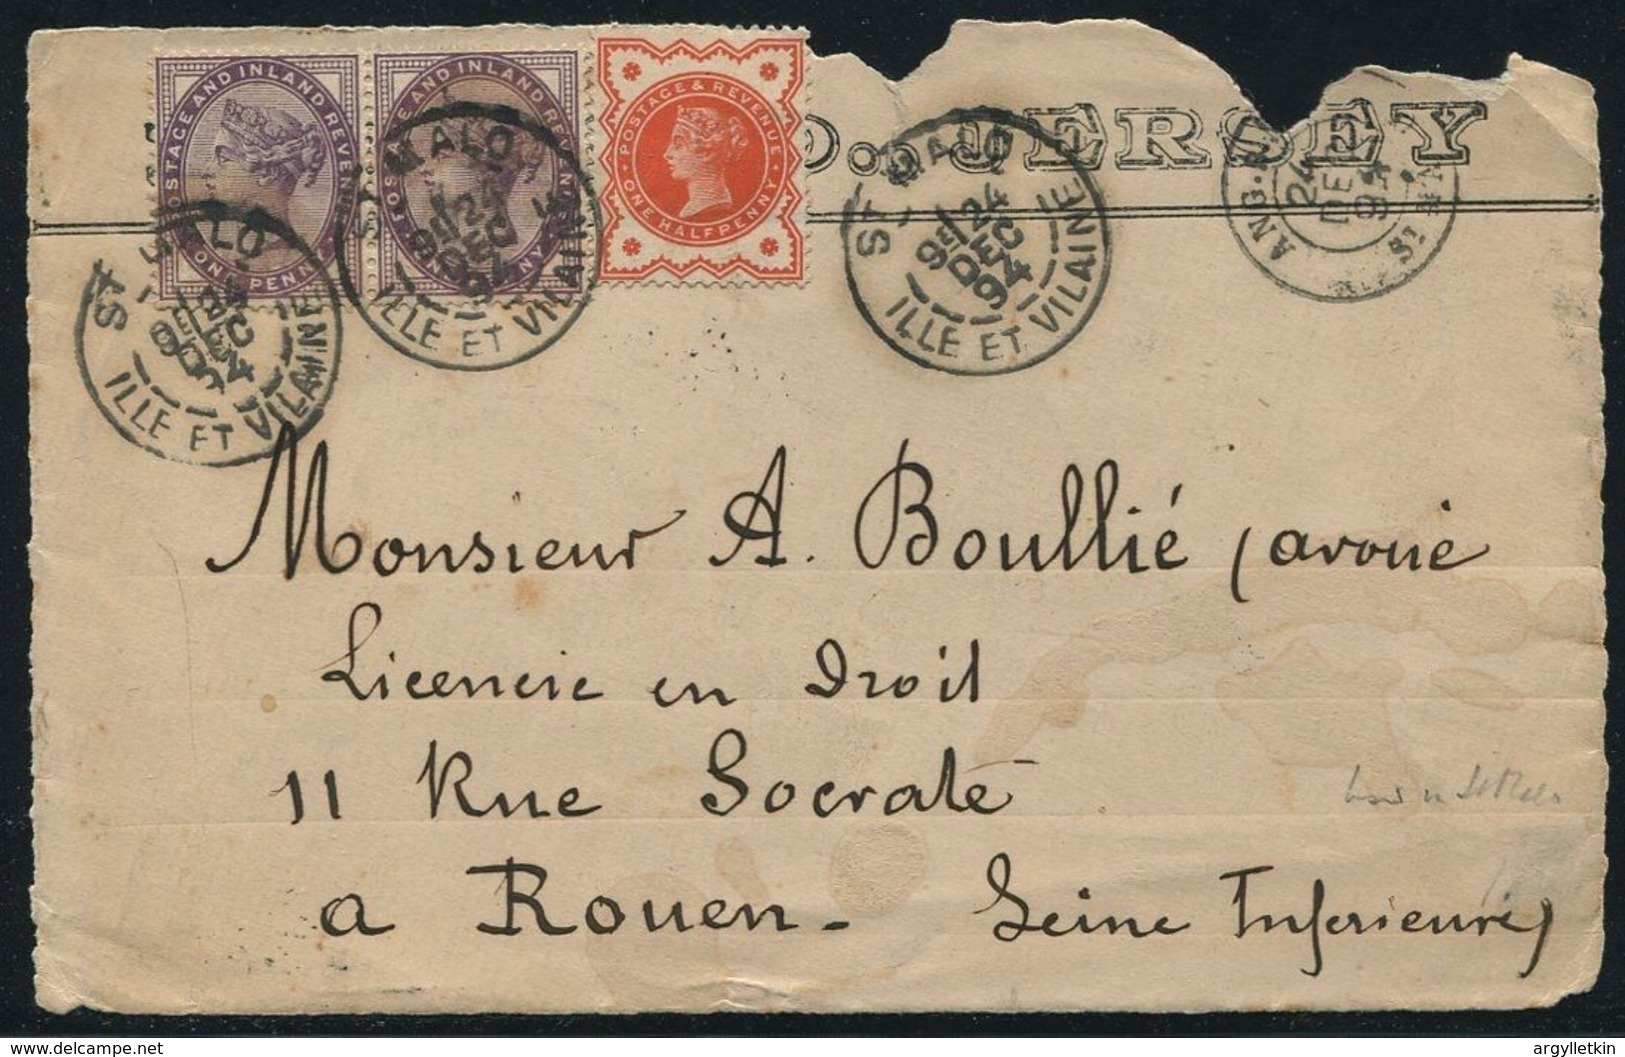 POSTAGE AND INLAND REVENUE
ONE PENNY
POSTAGE AND INLAND REVENUE
ONE PENNY
POSTAGE & REVENUE
ONE HALFPENNY
O. JERSEY
ST MALO
9E/24
DEC
94
ILLE ET VILAINE
ST MALO
9E/24
DEC
94
ILLE ET VILAINE
ST MALO
9E/24
DEC
94
ILLE ET VILAINE
ANG.
24
DEC
94
ST M
Monsieur A. Boullié (avoué
Licencié en Droit
11 Rue Socrate
a Rouen - Seine Inferieure)
argylletkin
© www.delcampe.net